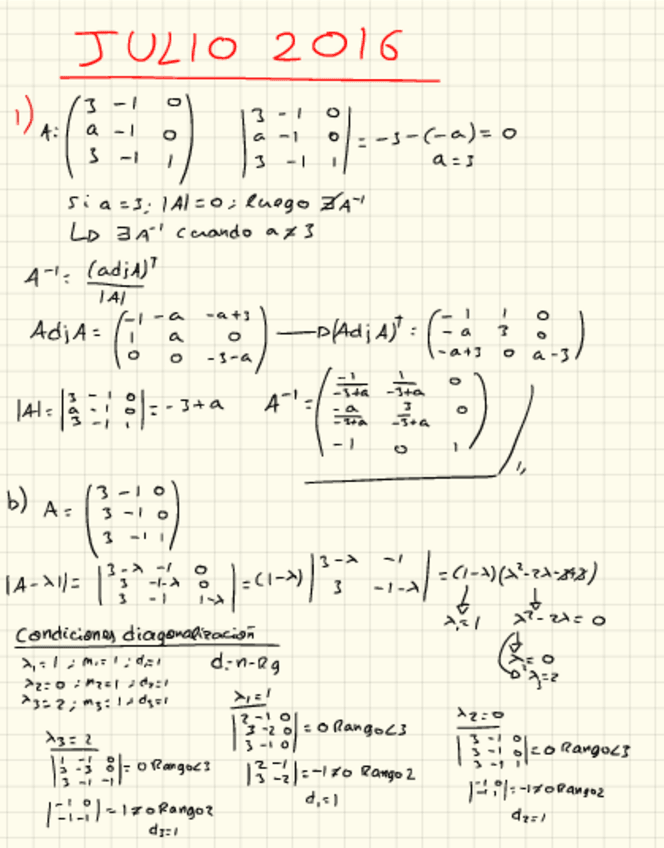 JULIO 2016
1) A: (3 -1 0 / a -1 0 / 3 -1 1) |3 -1 0 / a -1 0 / 3 -1 1| = -3-(-a) = 0
a = 3
Si a = 3; |A| = 0; luego ∄A⁻¹
L▷ ∃A⁻¹ cuando a ≠ 3
A⁻¹: (adjA)ᵀ / |A|
AdjA = (-1 -a -a+3 / 1 a 0 / 0 0 -3-a) —▷(AdjA)ᵀ = (-1 1 0 / -a 3 0 / -a+3 0 a-3)
|A| = |3 -1 0 / a -1 0 / 3 -1 1| = -3+a A⁻¹ = (-1/(-3+a) 1/(-3+a) 0 / -a/(-3+a) 3/(-3+a) 0 / -1 0 1)
b) A = (3 -1 0 / 3 -1 0 / 3 -1 1)
|A-λI| = |3-λ -1 0 / 3 -1-λ 0 / 3 -1 1-λ| = (1-λ) |3-λ -1 / 3 -1-λ| = (1-λ)(λ²-2λ)
λ₁=1 λ²-2λ = 0
λ=0
λ₃=2
Condiciones diagonalización
λ₁=1; m₁=1; d₁=1 d=n-Rg
λ₂=0; m₂=1; d₂=1
λ₃=2; m₃=1; d₃=1
λ₃=2
|1 -1 0 / 3 -3 0 / 3 -1 -1| = 0 Rango<3
|-1 0 / -1 -1| = 1≠0 Rango2
d₃=1
λ₁=1
|2 -1 0 / 3 -2 0 / 3 -1 0| = 0 Rango<3
|2 -1 / 3 -2| = -1≠0 Rango 2
d₁=1
λ₂=0
|3 -1 0 / 3 -1 0 / 3 -1 1| = 0 Rango<3
|-1 0 / -1 1| = -1≠0 Rango2
d₂=1